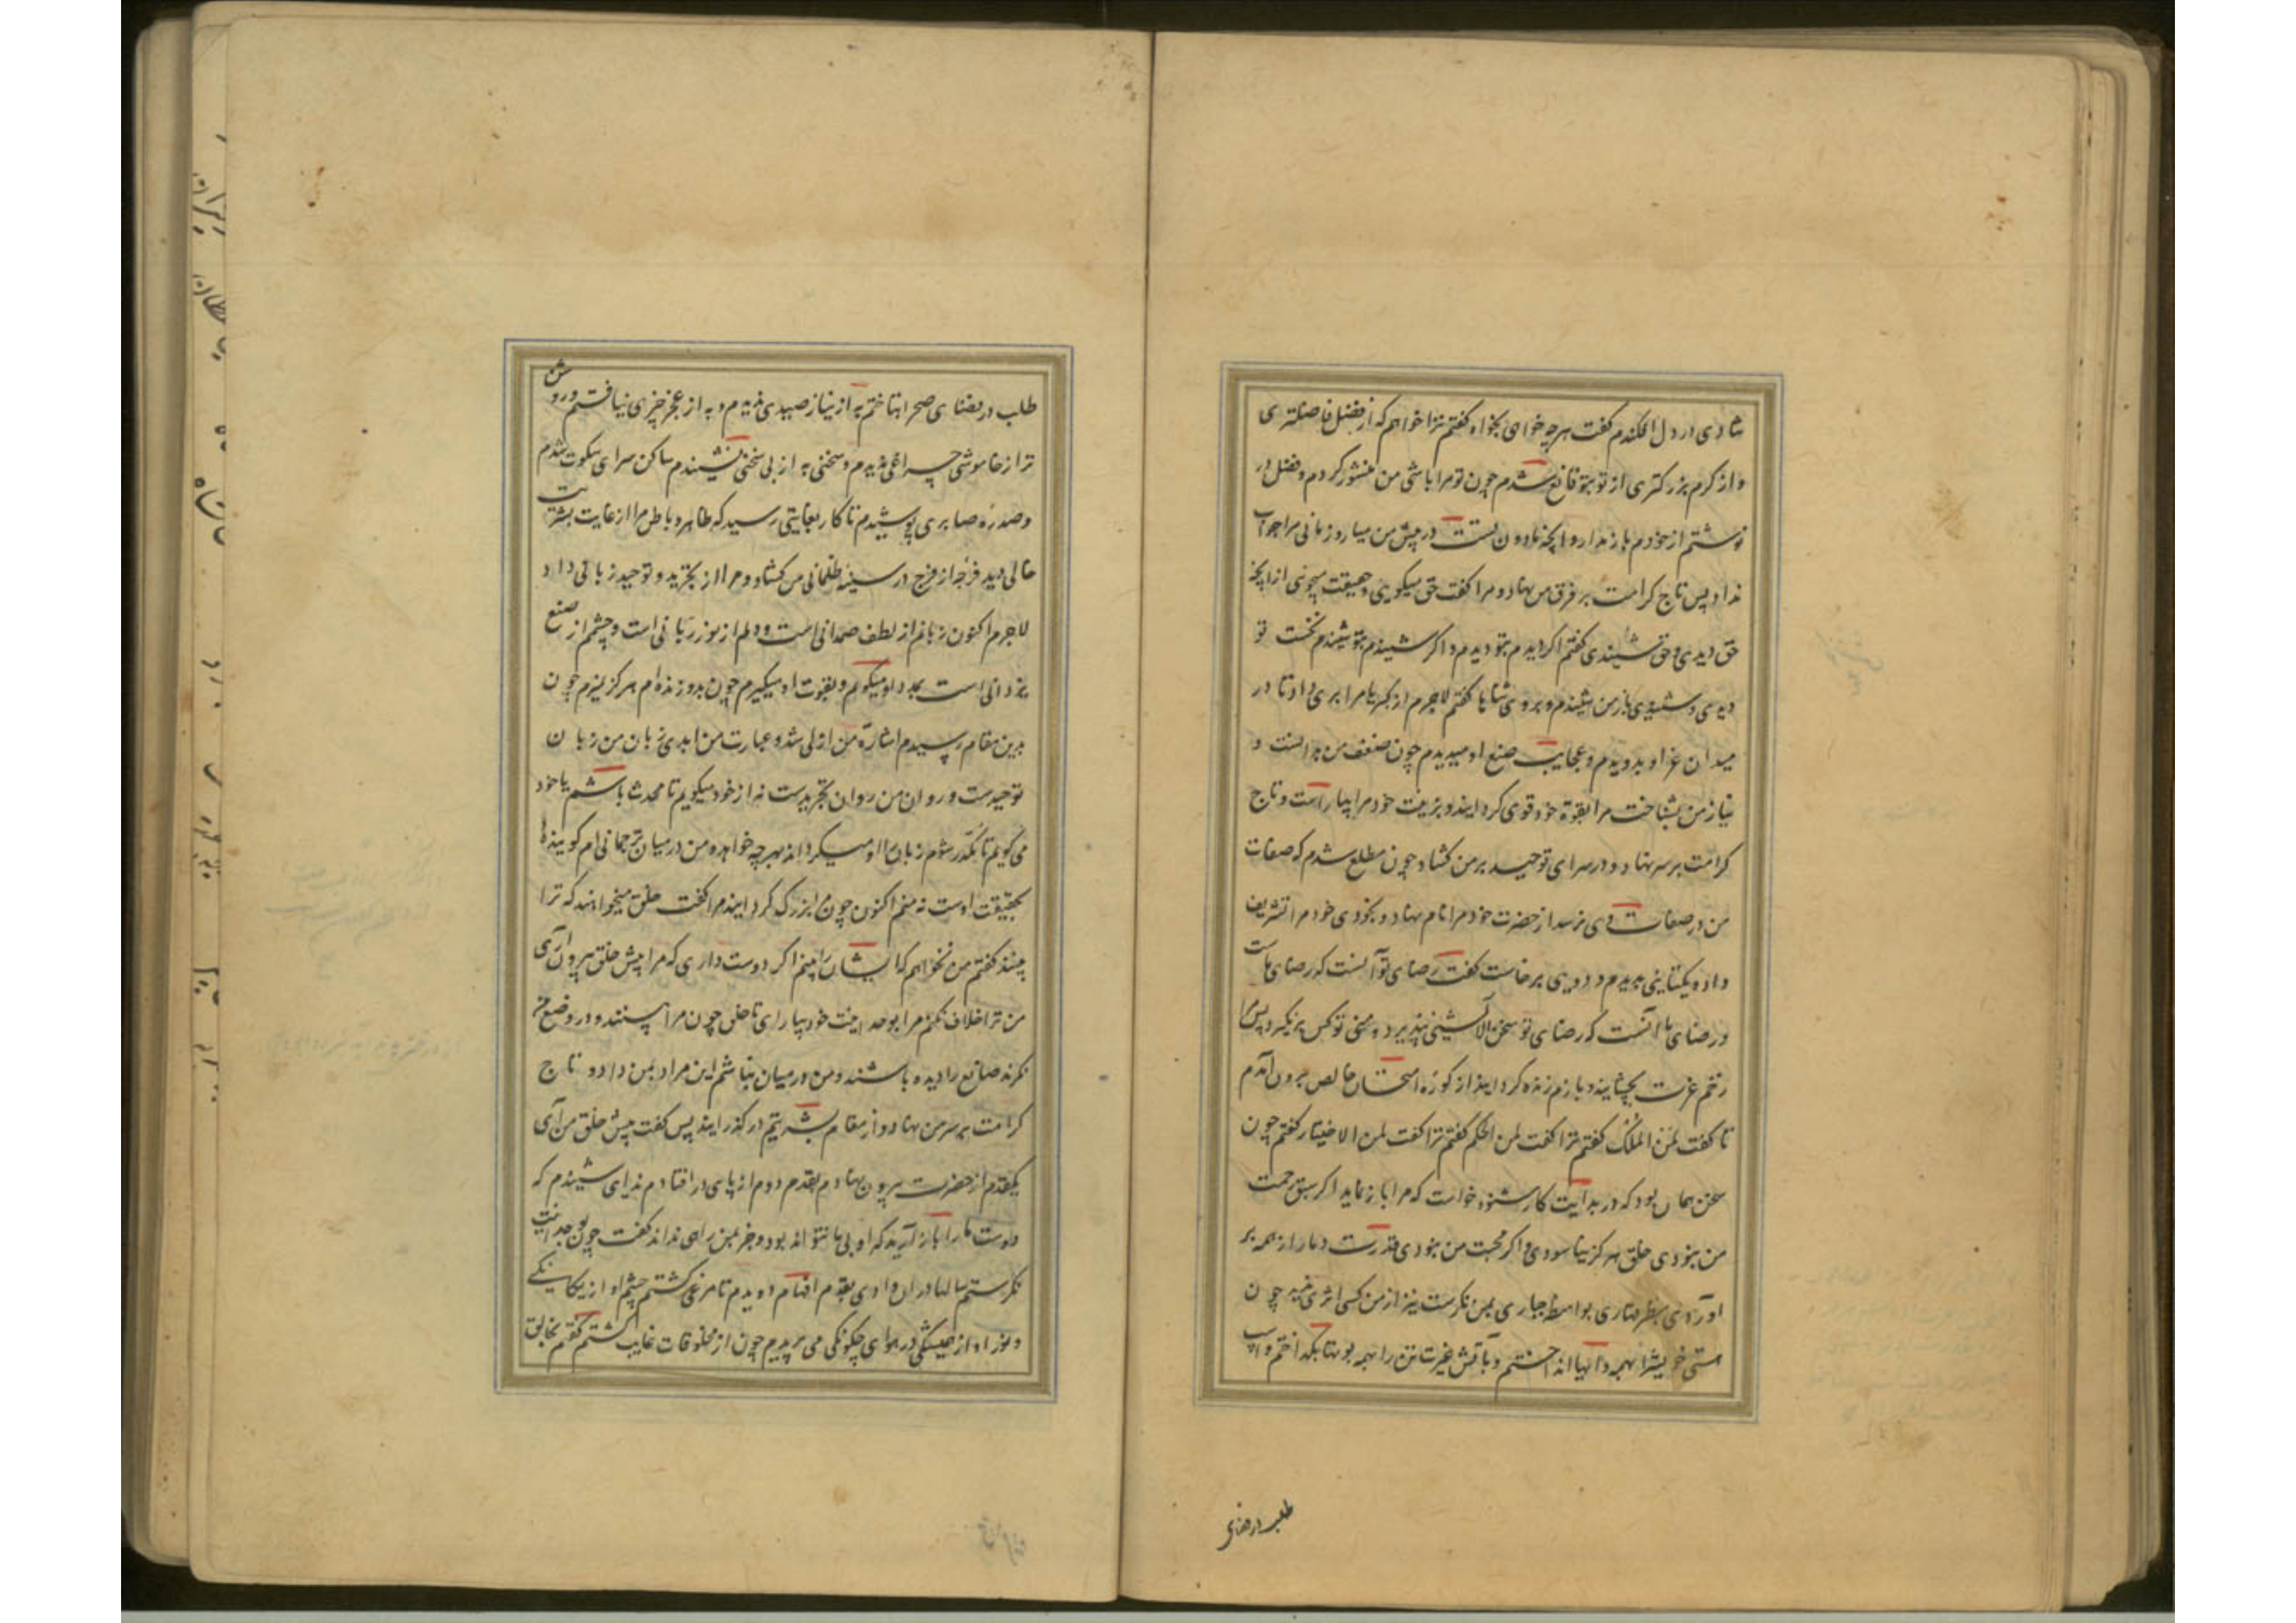 شادی در دل افکندم گفت هرچه خواهی بخواه گفتم ترا خواهم که از فضل فاضلتری
و از کرم بزرکتری از تو بتو قانع شدم چون تو مرا باشی من منشور کردم و فضل در
نوشتم از خودم باز ندار و آنچه مادون تست در پیش من میار زمانی مرا جواب
نداد پس تاج کرامت بر فرق من نهاد و مرا گفت حق میگویی و حقیقت میجویی از انچه
حق دیدی و حق شنیدی گفتم اگر دیدم بتو دیدم و اگر شنیدم بتو شنیدم نخست تو
دیدی و شنیدی باز من شنیدم و بروی ثناها گفتم لاجرم از کبریا مرا پری داد تا در
میدان عز او پریدم و عجایب صنع او میدیدم چون ضعف من بدانست و
نیاز من بشناخت مرا بقوة خود قوی گردانید و بزینت خود مرا بیاراست و تاج
کرامت بر سر نهاد و در سرای توحید بر من گشاد چون مطلع شدم که صفات
من در صفات وی برسد از حضرت خود مرا نام نهاد و بخودی خود مرا تشریف
داد یکتایی پدید و دویی برخاست گفت رضای تو آنست که رضای ماست
و رضای ما آنست که رضای تو سخن تو آلایش نپذیرد و منی تو کس بر تو نگیرد پس مرا
زخم غیرت بچشانید و بازم زنده گردانید از کوزه امتحان خالص برون آمدم
تا گفت لمن الملک گفتم ترا گفت لمن الحکم گفتم ترا گفت لمن الاختیار گفتم چون
سخن همان بود که در بدایت کار شنود خواست که مرا باز نماید اگر سبق رحمت
من نبودی خلق هرگز نیاسودی و اگر محبت من نبودی قدرت دمار از همه بر
آوردی بنظر قهاری بواسطه جباری بمن نگرست نیز از من کسی اثری ندید چون
مستی خویش را بهمه وادیها انداختم و بآتش غیرت تن را بهمه بوتها بگداختم و اسب
طلب در فضای
طلب در فضای صحرا بتاختم به از نیاز صیدی ندیدم و به از عجز چیزی نیافتم و روشن
تر از خاموشی چراغی ندیدم و سخنی به از بی سخنی نشنیدم ساکن سرای سکوت شدم
و صدره صابری پوشیدم تا کار بغایتی رسید که ظاهر و باطن مرا از علت بشریت
خالی دید فرجه از فرج در سینه ظلمانی من گشاد و مرا از تجرید و توحید زبانی داد
لاجرم اکنون زبانم از لطف صمدانی است و دلم از نور ربانی است و چشم از صنع
یزدانی است بمدد او میگویم و بقوت او میگیرم چون بدو زنده ام هرگز نمیرم چون
بدین مقام رسیدم اشارة من ازلی شد و عبارت من ابدی زبان من زبان
توحیدست و روان من روان تجریدست نه از خود میگویم تا محدث باشم یا خود
می گویم تا مذکر شوم زبان را او میگرداند بهر چه خواهد و من در میان ترجمانی ام گوینده
بحقیقت اوست نه منم اکنون چون مرا بزرگ گردانید مرا گفت خلق میخواهند که ترا
ببینند گفتم من نخواهم که ایشان را بینم اگر دوست داری که مرا پیش خلق بیرون آری
من ترا خلاف نکنم مرا بوحدانیت خود بیارای تا خلق چون مرا ببینند و در صنع تو
نگرند صانع را دیده باشند و من در میان نباشم این مراد بمن داد و تاج
کرامت بر سر من نهاد و از مقام بشریتم در گذرانید پس گفت پیش خلق من آی
یکقدم از حضرت بیرون نهادم بقدم دوم از پای در افتادم ندای شنیدم که
دوست ما را باز آرید که او بی ما نتواند بود و جز بمن راهی نداند گفت چون بوحدانیت
نگرستم سالها در آن وادی بقدم افهام دویدم تا مرغی گشتم چشم او از یگانگی
و پر او از همیشگی در هوای چگونگی می پریدم چون از مخلوقات غایب گشتم گفتم بخالق